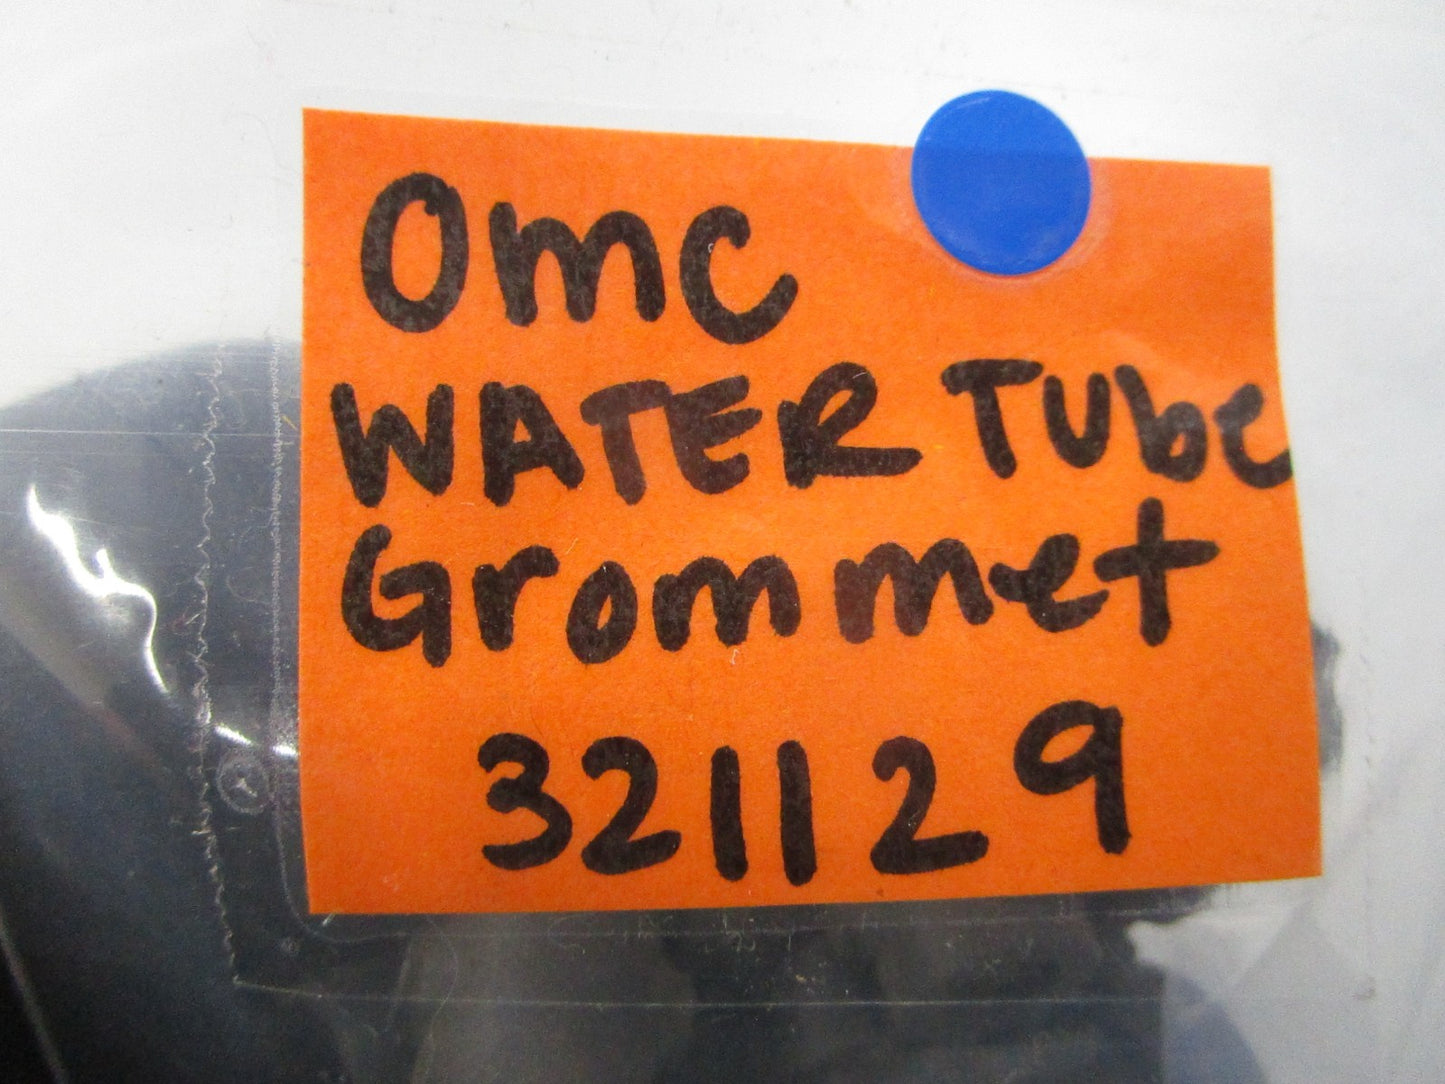 Omc
WATER TUbe
Grommet
321129